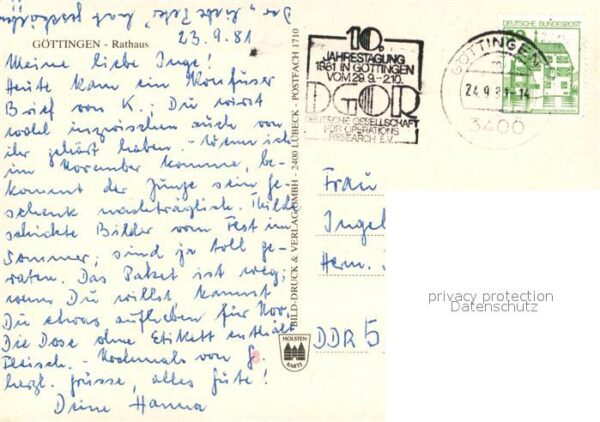 Der "
GÖTTINGEN - Rathaus
23.9.81
Meine liebe Inge!
Heute kam ein konfuser
Brief von K.; Du wirst
wohl inzwischen auch von
ihr gehört haben. - Wenn ich
im November komme, be-
kommt der Junge sein Ge-
schenk nachträglich. Thilde
schickte Bilder vom Fest im
Sommer; sind ja toll ge-
raten. Das Paket ist weg;
wenn Du willst, kannst
Du etwas aufheben für Nov.
Die Dose ohne Etikett enthält
Fleisch. - Nochmals von G.
herzl. Grüsse, alles Gute!
Deine Hanna
BILD-DRUCK & VERLAG GMBH - 2400 LÜBECK - POSTFACH 1710
HOLSTEN
KARTE
10.
JAHRESTAGUNG
1981 IN GÖTTINGEN
VOM 29.9.-2.10.
DGOR
DEUTSCHE GESELLSCHAFT
FOR OPERATIONS
RESEARCH E.V.
GÖTTINGEN
24.9.81-14
3400
DEUTSCHE BUNDESPOST
Frau
Ingel
Herm.
DDR 5
privacy protection
Datenschutz